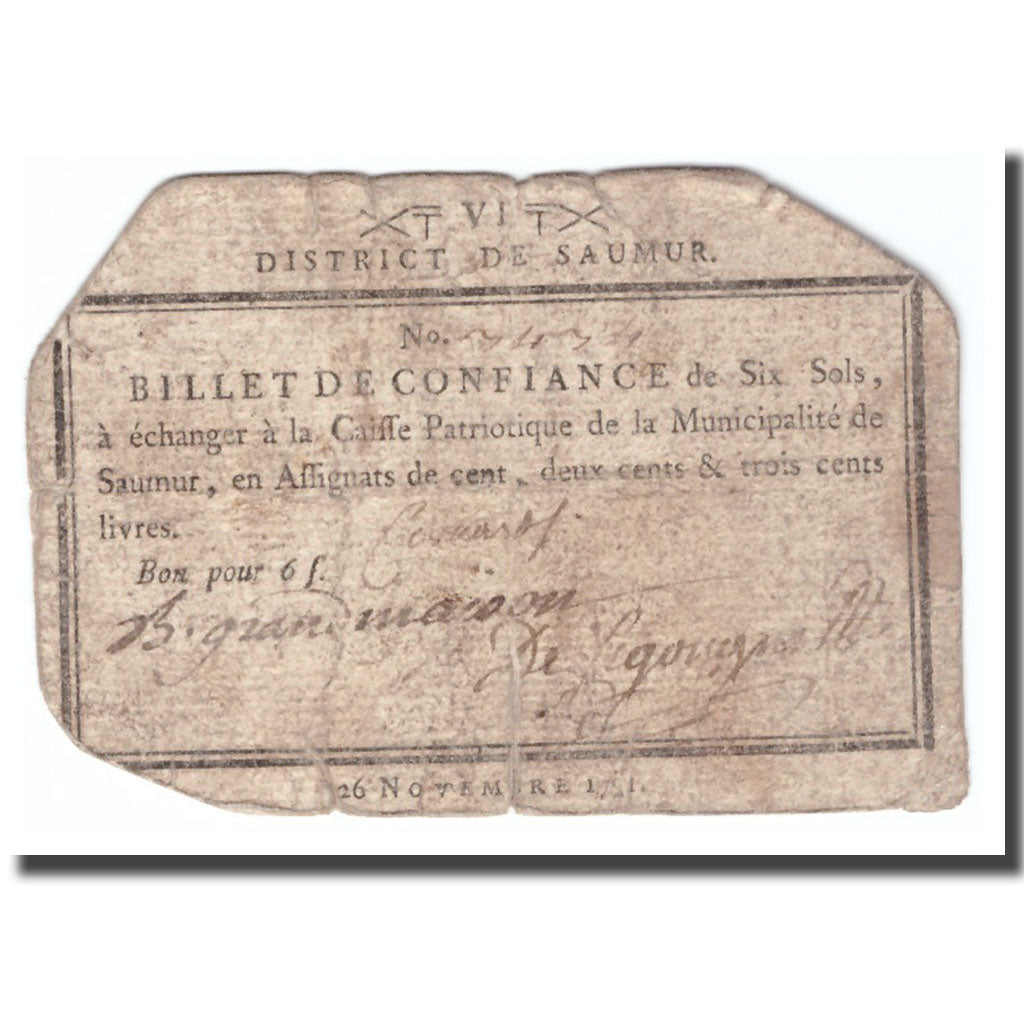 VI
DISTRICT DE SAUMUR.
No. 5434
BILLET DE CONFIANCE de Six Sols,
à échanger à la Caiſſe Patriotique de la Municipalité de
Saumur, en Aſſignats de cent, deux cents & trois cents
livres.
Bon pour 6 ſ.
B. grandmaison
26 NOVEMBRE 1791.